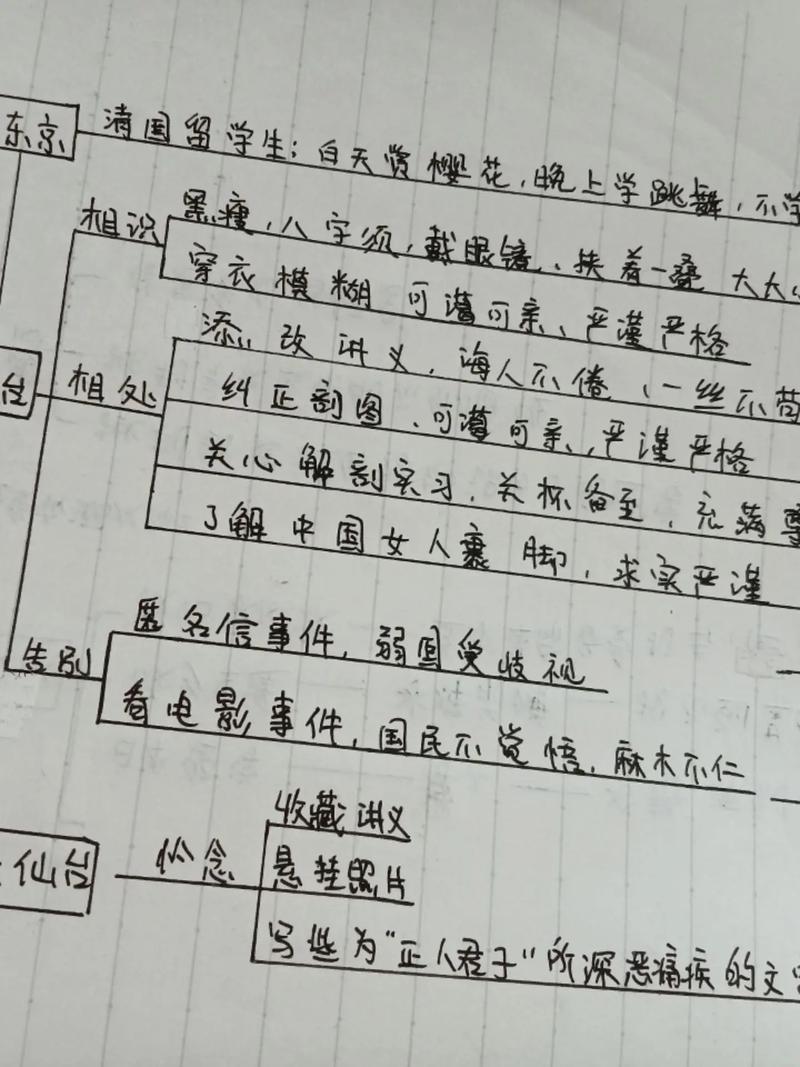 东京
清国留学生：白天赏樱花，晚上学跳舞，不学
相识
黑瘦，八字须，戴眼镜、挟着一叠大大小
穿衣模糊 可蔼可亲、严谨严格
台
相处
添改讲义，诲人不倦、一丝不苟
纠正剖图、可蔼可亲，严谨严格
关心解剖实习，关怀备至，充满尊
了解中国女人裹脚，求实严谨
告别
匿名信事件，弱国受歧视
看电影事件，国民不觉悟，麻木不仁
仙台
怀念
收藏讲义
悬挂照片
写些为“正人君子”所深恶痛疾的文字